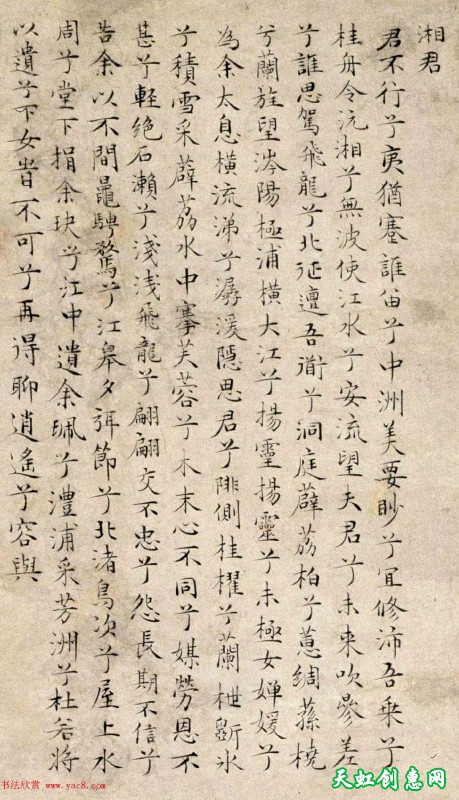 湘君
君不行兮夷猶蹇誰留兮中洲美要眇兮宜修沛吾乘兮
桂舟令沅湘兮無波使江水兮安流望夫君兮未來吹參差
兮誰思駕飛龍兮北征邅吾道兮洞庭薜荔柏兮蕙綢蓀橈
兮蘭旌望涔陽極浦橫大江兮揚靈揚靈兮未極女嬋媛兮
為余太息橫流涕兮潺湲隱思君兮陫側桂櫂兮蘭枻斲冰
兮積雪采薜荔水中搴芙蓉兮木末心不同兮媒勞恩不
甚兮輕絕石瀨兮淺淺飛龍兮翩翩交不忠兮怨長期不信兮
告余以不間鼂騁騖兮江皋夕弭節兮北渚鳥次兮屋上水
周兮堂下捐余玦兮江中遺余珮兮澧浦采芳洲兮杜若將
以遺兮下女旹不可兮再得聊逍遙兮容與
书法欣赏 www.yac8.com
天虹创惠网